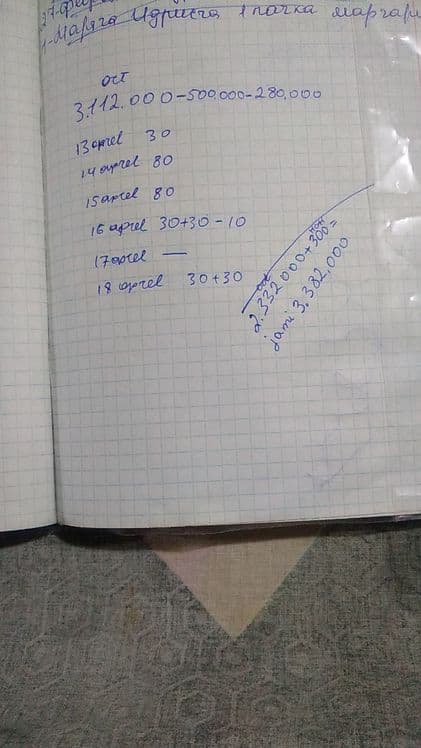 27-фев
1-Маряга Идрисга 1 пачка маргари
ост
3.112.000-500.000-280.000
13 aprel 30
14 aprel 80
15 aprel 80
16 aprel 30+30-10
17 aprel —
18 aprel 30+30
ост нон
2.332000+300=
jami 3.382.000